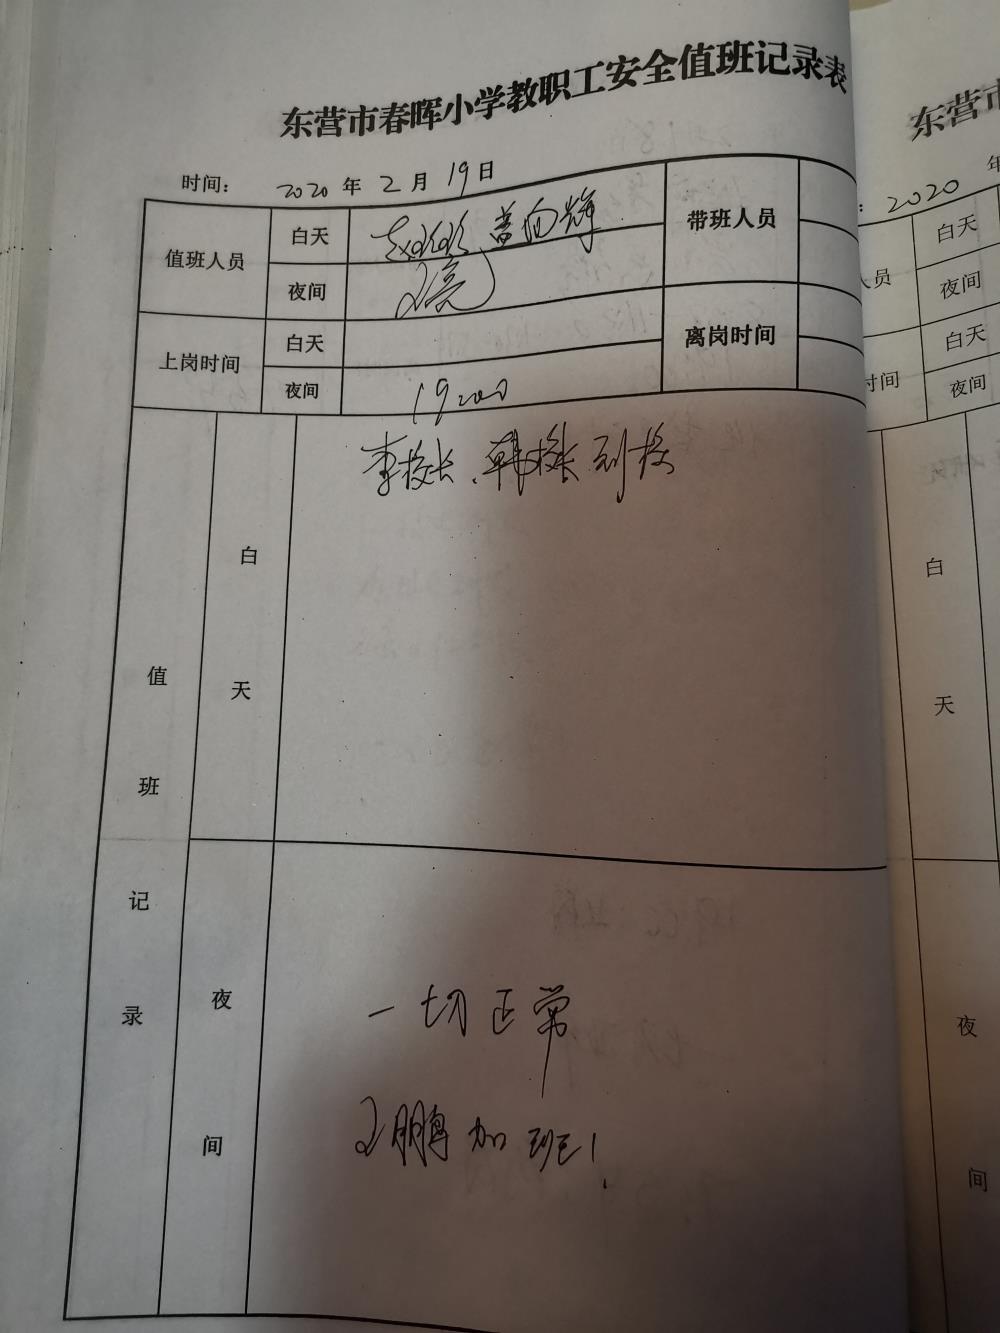 东营市春晖小学教职工安全值班记录表
时间： 2020 年 2 月 19 日
值班人员 白天 带班人员
夜间 王亮
上岗时间 白天 离岗时间
夜间 19:00
值班记录
白天
李校长、韩校长到校
夜间
一切正常
王鹏加班！
东营市
: 2020 年
人员 白天
夜间
时间 白天
夜间
白天
夜间